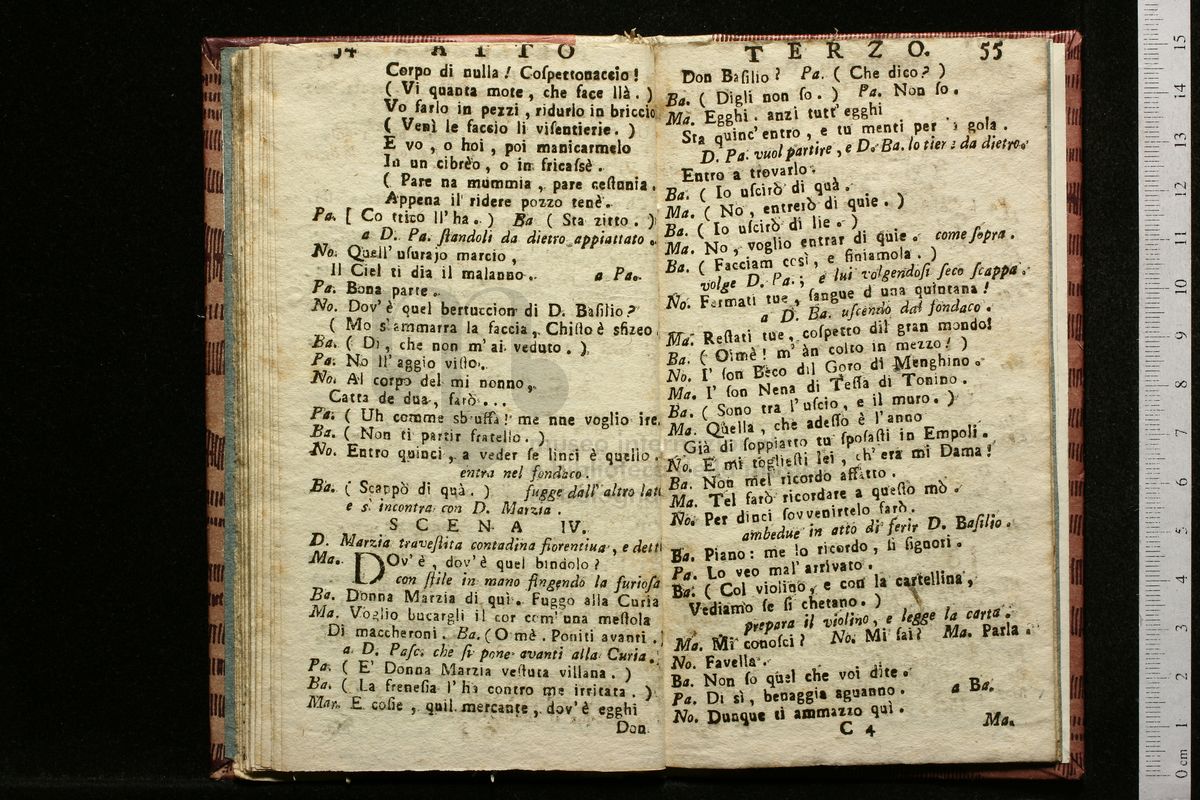 54 A T T O
Corpo di nulla! Coſpettonaccio!
( Vi quanta mote, che face llà. )
Vo farlo in pezzi, ridurlo in briccio
( Venì le faccio li viſentierie. )
E vo, o hoi, poi manicarmelo
In un cibrèo, o in fricaſsè.
( Pare na mummia, pare ceſtunia.
Appena il ridere pozzo tenè.
Pa. [ Co ttico ll'ha. ) Ba ( Sta zitto. )
a D. Pa. ſtandoli da dietro appiattato.
No. Quell' uſurajo marcio,
Il Ciel ti dia il malanno. a Pa.
Pa. Bona parte.
No. Dov'è quel bertuccion di D. Baſilio?
( Mo s'ammarra la faccia, Chiſto è sfizeo
Ba. ( Di, che non m'ai veduto. )
Pa. No ll'aggio viſto.
No. Al corpo del mi nonno,
Catta de dua, farò...
Pa. ( Uh comme sbuffa! me nne voglio ire.
Ba. ( Non ti partir fratello. )
No. Entro quinci, a veder ſe linci è quello.
entra nel fondaco.
Ba. ( Scappò di quà. ) fugge dall' altro lato
e s' incontra con D. Marzia.
S C E N A IV.
D. Marzia traveſtita contadina fiorentiua, e detti
Ma. DOv'è, dov'è quel bindolo?
con ſtile in mano fingendo la furioſa
Ba. Donna Marzia di quì. Fuggo alla Curia
Ma. Voglio bucargli il cor com'una meſtola
Di maccheroni. Ba. (O mè. Poniti avanti.)
a D. Paſc. che ſi pone avanti alla Curia.
Pa. ( E' Donna Marzia veſtuta villana. )
Ba. ( La freneſia l'ha contro me irritata. )
Mar. E coſie, quil mercante, dov'è egghi
Don
T E R Z O. 55
Don Baſilio? Pa. ( Che dico? )
Ba. ( Digli non ſo. ) Pa. Non ſo.
Ma. Egghi. anzi tutt'egghi
Sta quinc'entro, e tu menti per gola.
D. Pa. vuol partire, e D. Ba. lo tiene da dietro.
Entro a trovarlo.
Ba. ( Io uſcirò di quà.
Ma. ( No, entrerò di quie. )
Ba. ( Io uſcirò di lie. )
Ma. No, voglio entrar di quie. come ſopra.
Ba. ( Facciam così, e finiamola. )
volge D. Pa.; e lui volgendoſi ſeco ſcappa.
No. Fermati tue, ſangue d una quintana!
a D. Ba. uſcendo dal fondaco.
Ma. Reſtati tue, coſpetto dil gran mondo!
Ba. ( Oimè! m'àn colto in mezzo! )
No. I' ſon Beco dil Goro di Menghino.
Ma. I' ſon Nena di Teſſa di Tonino.
Ba. ( Sono tra l'uſcio, e il muro. )
Ma. Quella, che adeſſo è l'anno
Già di ſoppiatto tu ſpoſaſti in Empoli.
No. E mi togliеſti lei, ch'era mi Dama!
Ba. Non mel ricordo affatto.
Ma. Tel farò ricordare a queſto mò.
No. Per dinci ſovvenirtelo farò.
ambedue in atto di ferir D. Baſilio.
Ba. Piano: me lo ricordo, ſi ſignori.
Pa. Lo veo mal'arrivato.
Ba. ( Col violino, e con la cartellina,
Vediamo ſe ſi chetano. )
prepara il violino, e legge la carta.
Ma. Mi conoſci? No. Mi ſai? Ma. Parla.
No. Favella.
Ba. Non ſo quel che voi dite.
Pa. Di sì, benaggia aguanno. a Ba.
No. Dunque ti ammazzo quì.
C 4 Ma.